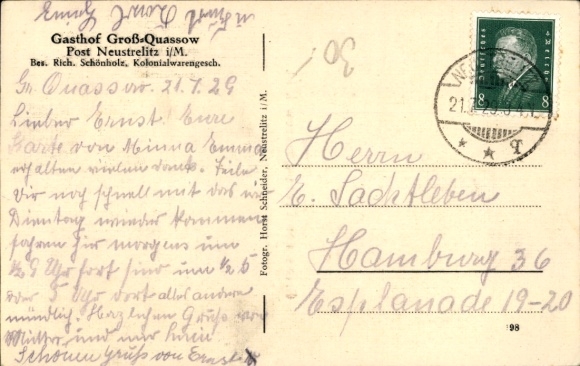 Gasthof Groß-Quassow
Post Neustrelitz i/M.
Bes. Rich. Schönholz, Kolonialwarengesch.
Gr. Quassow. 21.7.29
Lieber Ernst. Eure
Karte von Minna Emma
erhalten vielen dank. Teile
Dir noch schnell mit das wir
Dienstag wieder kommen
fahren hir morgens um
½ 9 Uhr fort sind um ½ 5
oder 5 Uhr dort alles andere
mündlich. Herzlichen Gruß von
Mutter und
Schönen Gruss von
Fotogr. Horst Schneider, Neustrelitz i/M.
30
Deutsches Reich
8 8
21.7.29
Herrn
E. Sachtleben
Hamburg 36
Esplanade 19-20
198